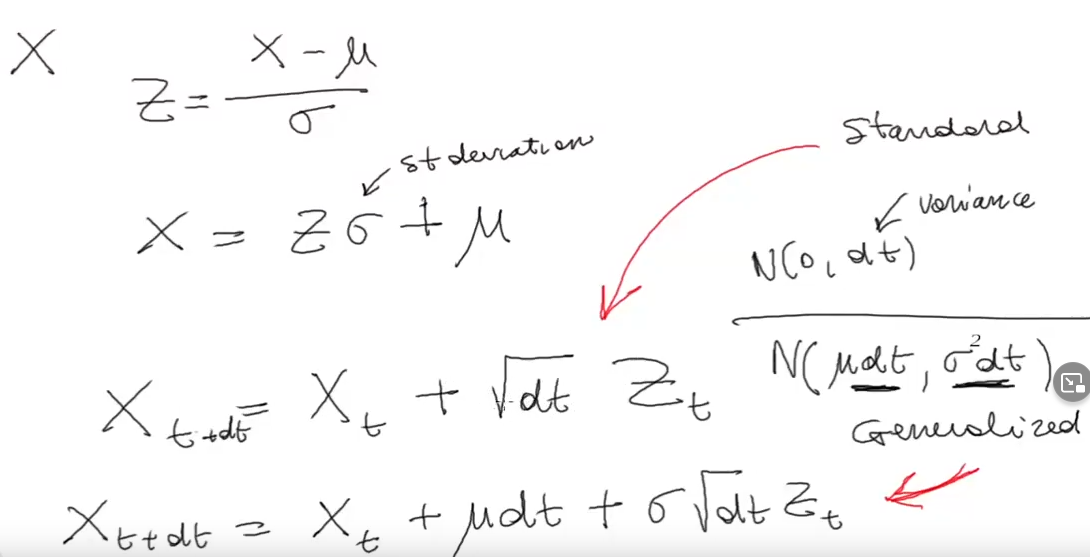 X
Z = (X - μ) / σ
st deviation
X = Zσ + μ
Standard
variance
N(0, dt)
N(μdt, σ²dt)
Generalized
X_{t+dt} = X_t + √dt Z_t
X_{t+dt} = X_t + μdt + σ√dt Z_t